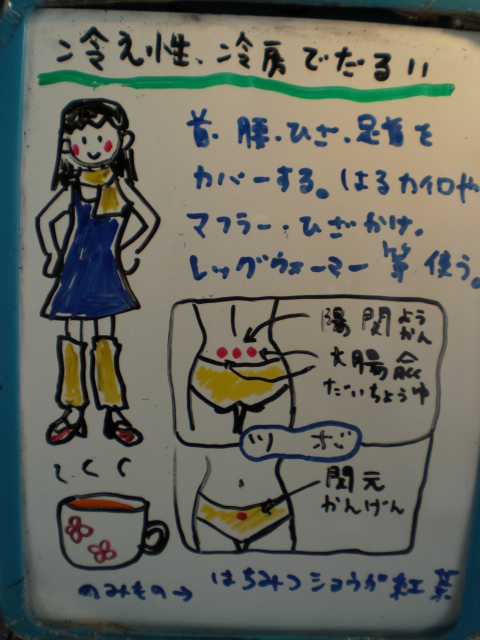 冷え性、冷房でだるい
首・腰・ひざ・足首を
カバーする。はるカイロや
マフラー・ひざかけ、
レッグウォーマー等使う。
陽関ようかん
大腸兪
だいちょうゆ
ツボ
関元
かんげん
のみもの→ はちみつショウガ紅茶